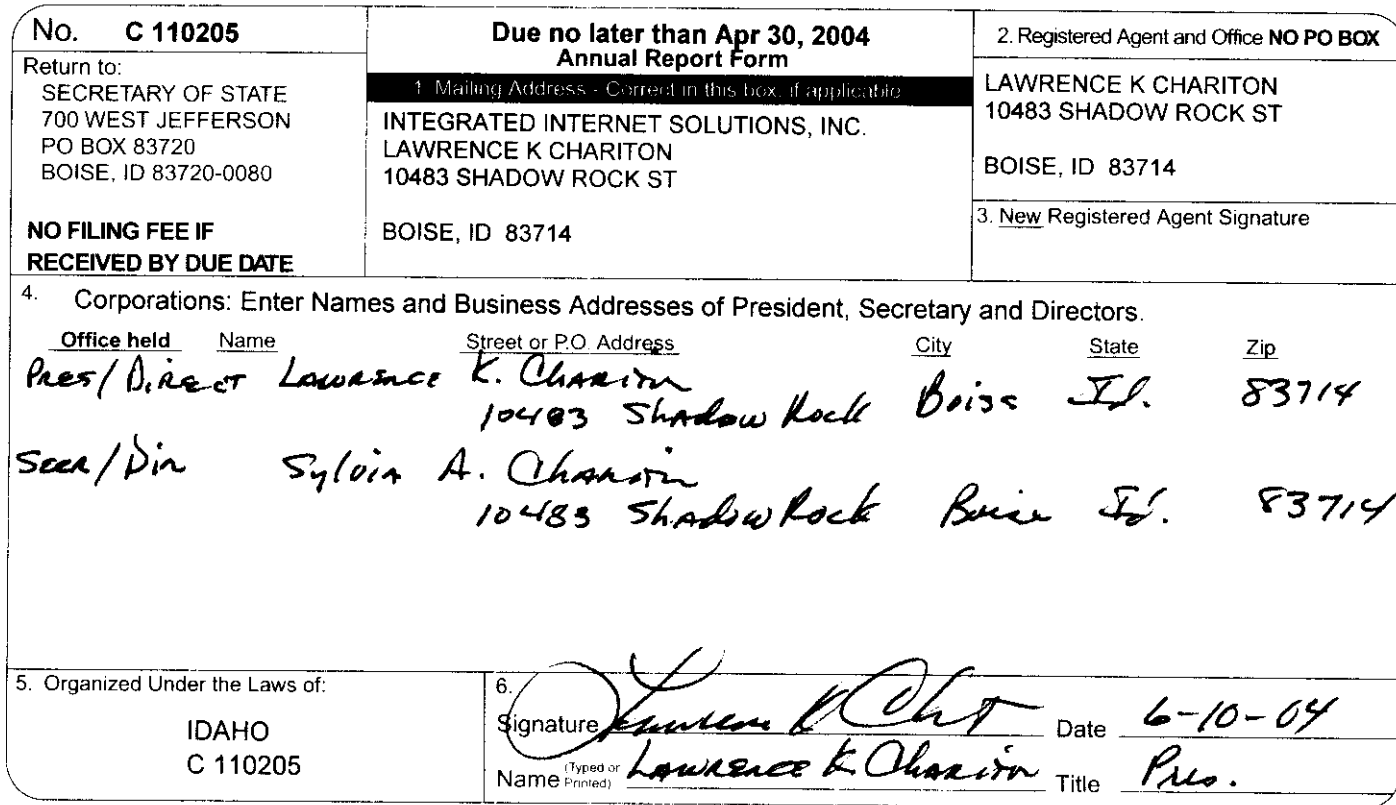 No. C 110205
Return to:
SECRETARY OF STATE
700 WEST JEFFERSON
PO BOX 83720
BOISE, ID 83720-0080
NO FILING FEE IF
RECEIVED BY DUE DATE
Due no later than Apr 30, 2004
Annual Report Form
1. Mailing Address - Correct in this box, if applicable
INTEGRATED INTERNET SOLUTIONS, INC.
LAWRENCE K CHARITON
10483 SHADOW ROCK ST
BOISE, ID 83714
2. Registered Agent and Office NO PO BOX
LAWRENCE K CHARITON
10483 SHADOW ROCK ST
BOISE, ID 83714
3. New Registered Agent Signature
4. Corporations: Enter Names and Business Addresses of President, Secretary and Directors.
Office held Name Street or P.O. Address City State Zip
Pres/Direct Lawrence K. Chariton
10483 Shadow Rock Boise Id. 83714
Secr/Dir Sylvia A. Chariton
10483 Shadow Rock Boise Id. 83714
5. Organized Under the Laws of:
IDAHO
C 110205
6.
Signature Lawrence K Date 6-10-04
Name (Typed or Printed) Lawrence K. Chariton Title Pres.